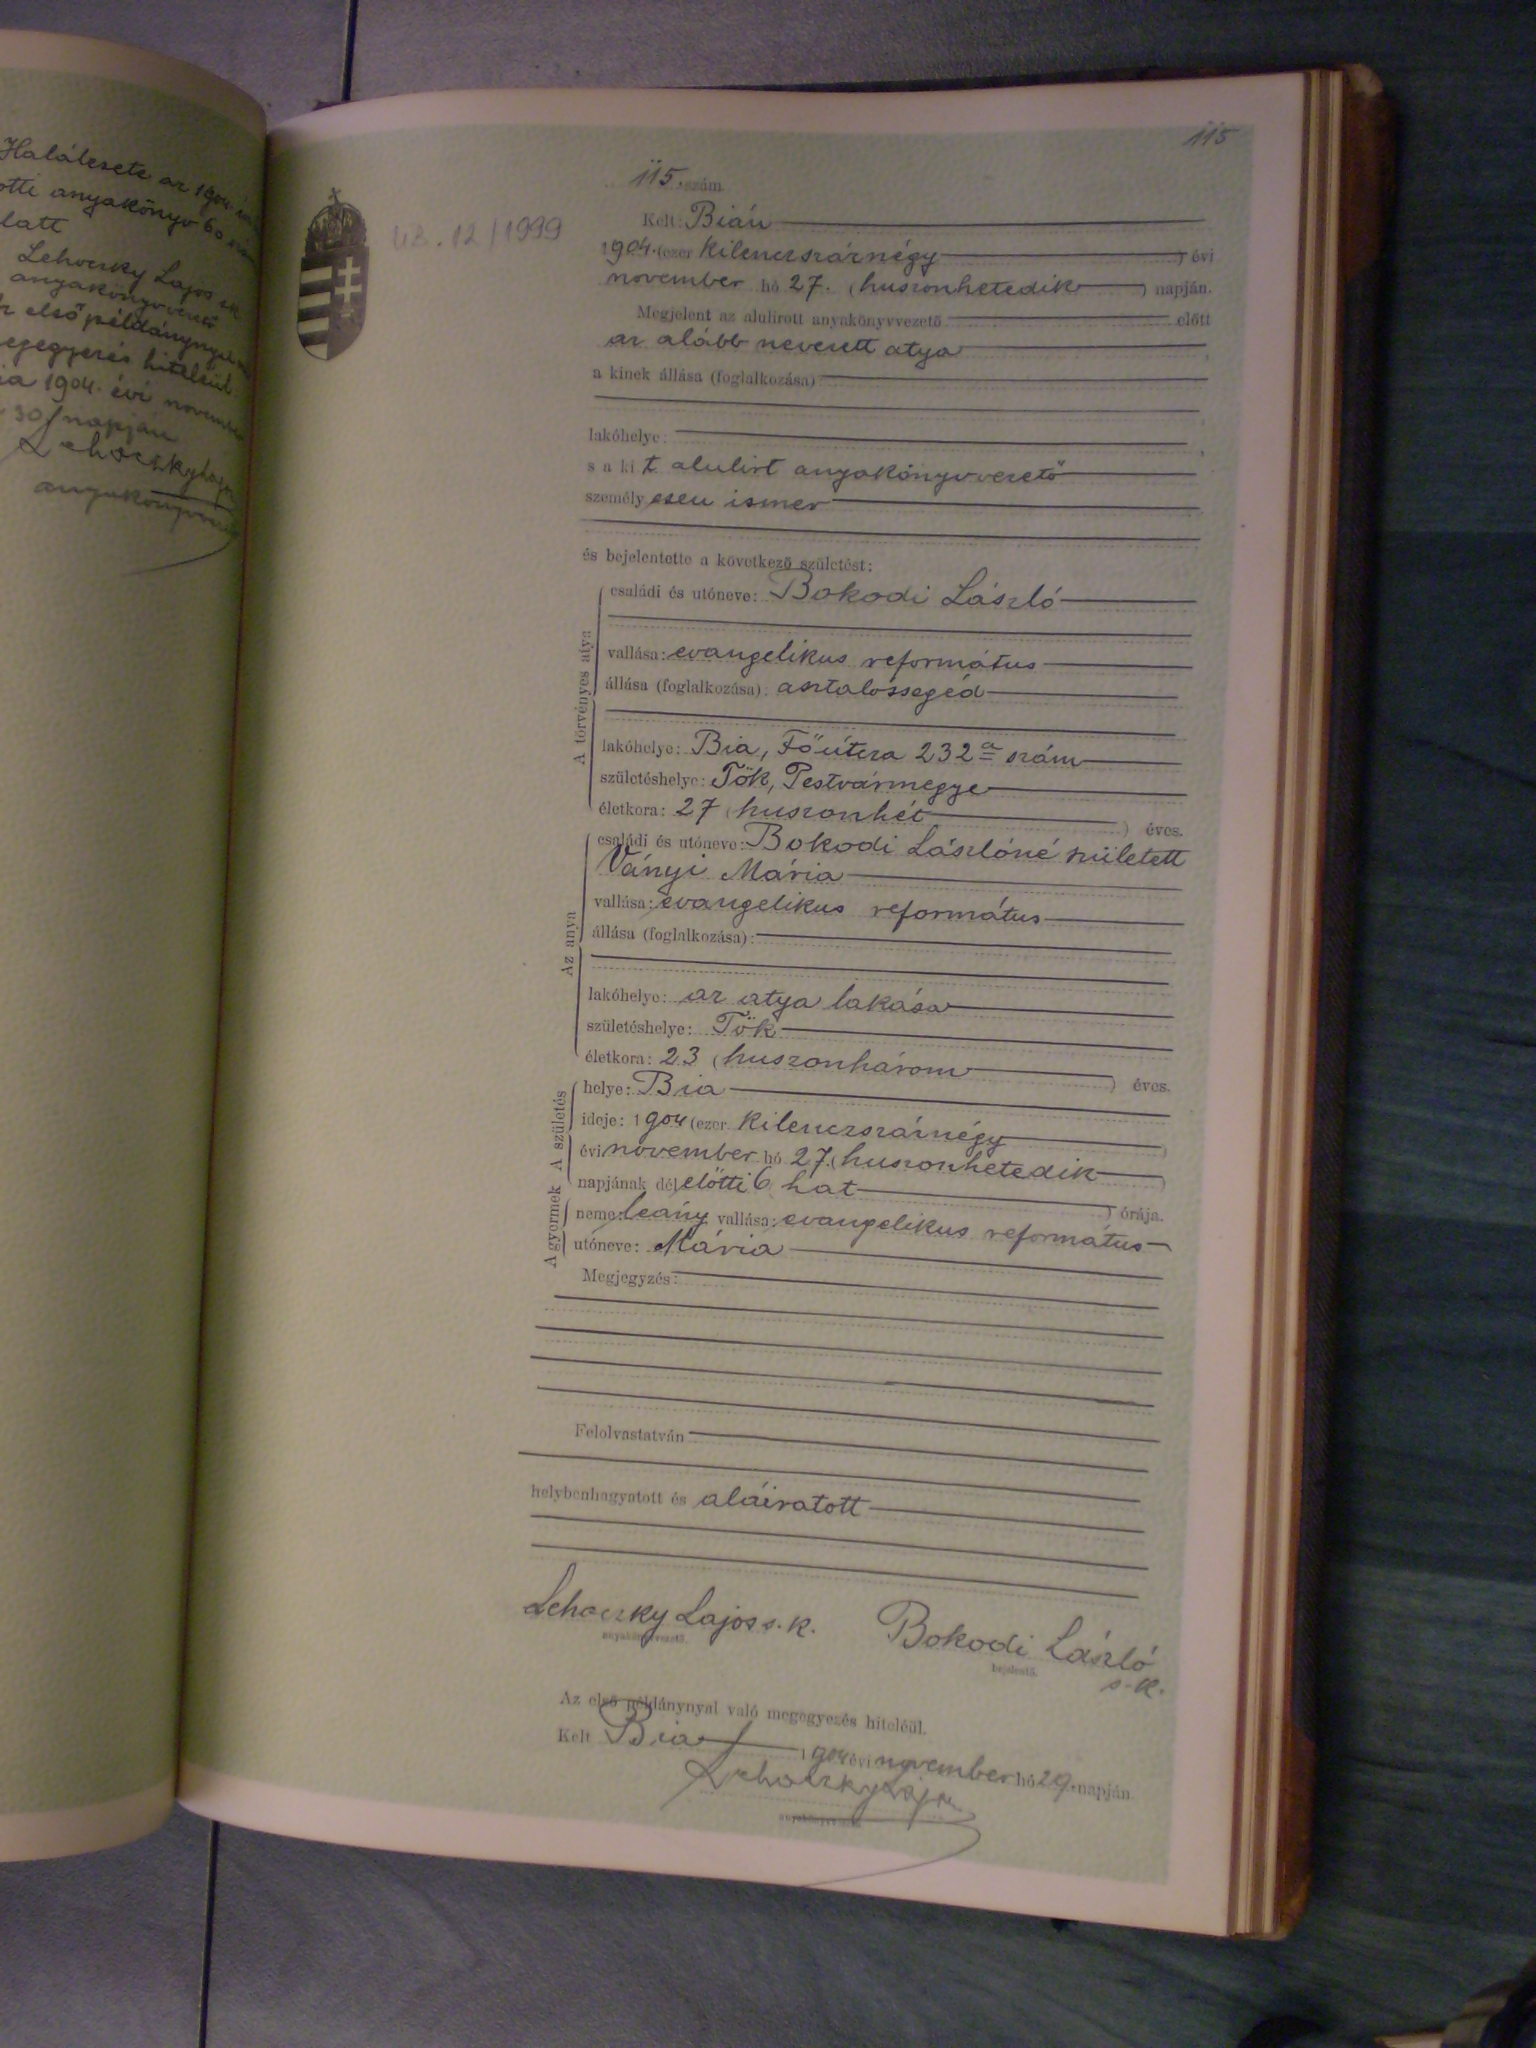 Halálesete az 1904. évi
anyakönyv 60
alatt
Lehoczky Lajos s.k.
anyakönyvvezető
első példánynyal
megegyezés hiteléül.
Bia 1904. évi november
30 napján
Lehoczky Lajos
anyakönyvvezető
115
115. szám.
12/1999
Kelt: Bián
1904. (ezer kilenczszáznégy ) évi
november hó 27. (huszonhetedik ) napján.
Megjelent az alulirott anyakönyvvezető előtt
az alább nevezett atya
a kinek állása (foglalkozása)
lakóhelye:
s a kit alulirt anyakönyvvezető
személyesen ismer
és bejelentette a következő születést:
A törvényes atya
családi és utóneve: Bokodi László
vallása: evangelikus református
állása (foglalkozása): asztalossegéd
lakóhelye: Bia, Főútcza 232 a szám
születéshelye: Tök, Pestvármegye
életkora: 27 (huszonhét ) éves.
Az anya
családi és utóneve: Bokodi Lászlóné született
Ványi Mária
vallása: evangelikus református
állása (foglalkozása):
lakóhelye: az atya lakása
születéshelye: Tök
életkora: 23 (huszonhárom ) éves.
A születés
helye: Bia
ideje: 1904 (ezer kilenczszáznégy )
évi november hó 27. (huszonhetedik )
napjának délelőtti 6 (hat ) órája.
A gyermek
neme: leány vallása: evangelikus református
utóneve: Mária
Megjegyzés:
Felolvastatván
helybenhagyatott és aláiratott
Lehoczky Lajos s.k. Bokodi László
anyakönyvvezető. bejelentő.
s.k.
Az első példánynyal való megegyezés hiteléül.
Kelt Bia 1904 évi november hó 29. napján
Lehoczky Lajos
anyakönyvvezető